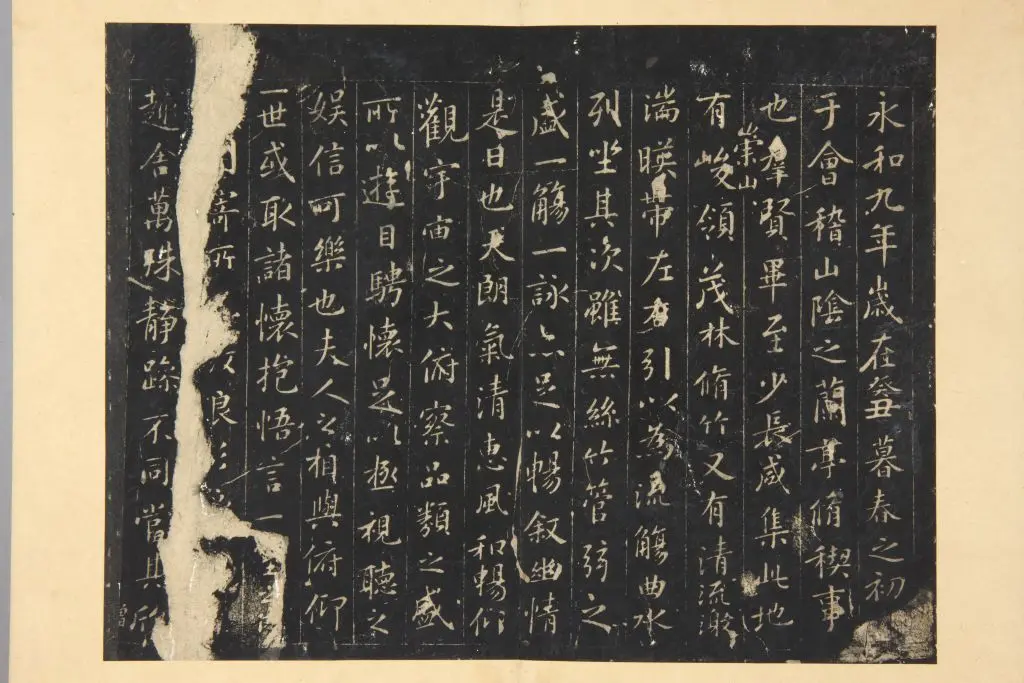 永和九年歲在癸丑暮春之初
于會稽山陰之蘭亭脩稧事
也羣賢畢至少長咸集此地
有崇山峻領茂林脩竹又有清流激
湍暎帶左右引以為流觴曲水
列坐其次雖無絲竹管弦之
盛一觴一詠亦足以暢叙幽情
是日也天朗氣清惠風和暢仰
觀宇宙之大俯察品類之盛
所以遊目騁懷足以極視聽之
娛信可樂也夫人之相與俯仰
一世或取諸懷抱悟言一
寄所浪
趣舍萬殊靜躁不同當其欣